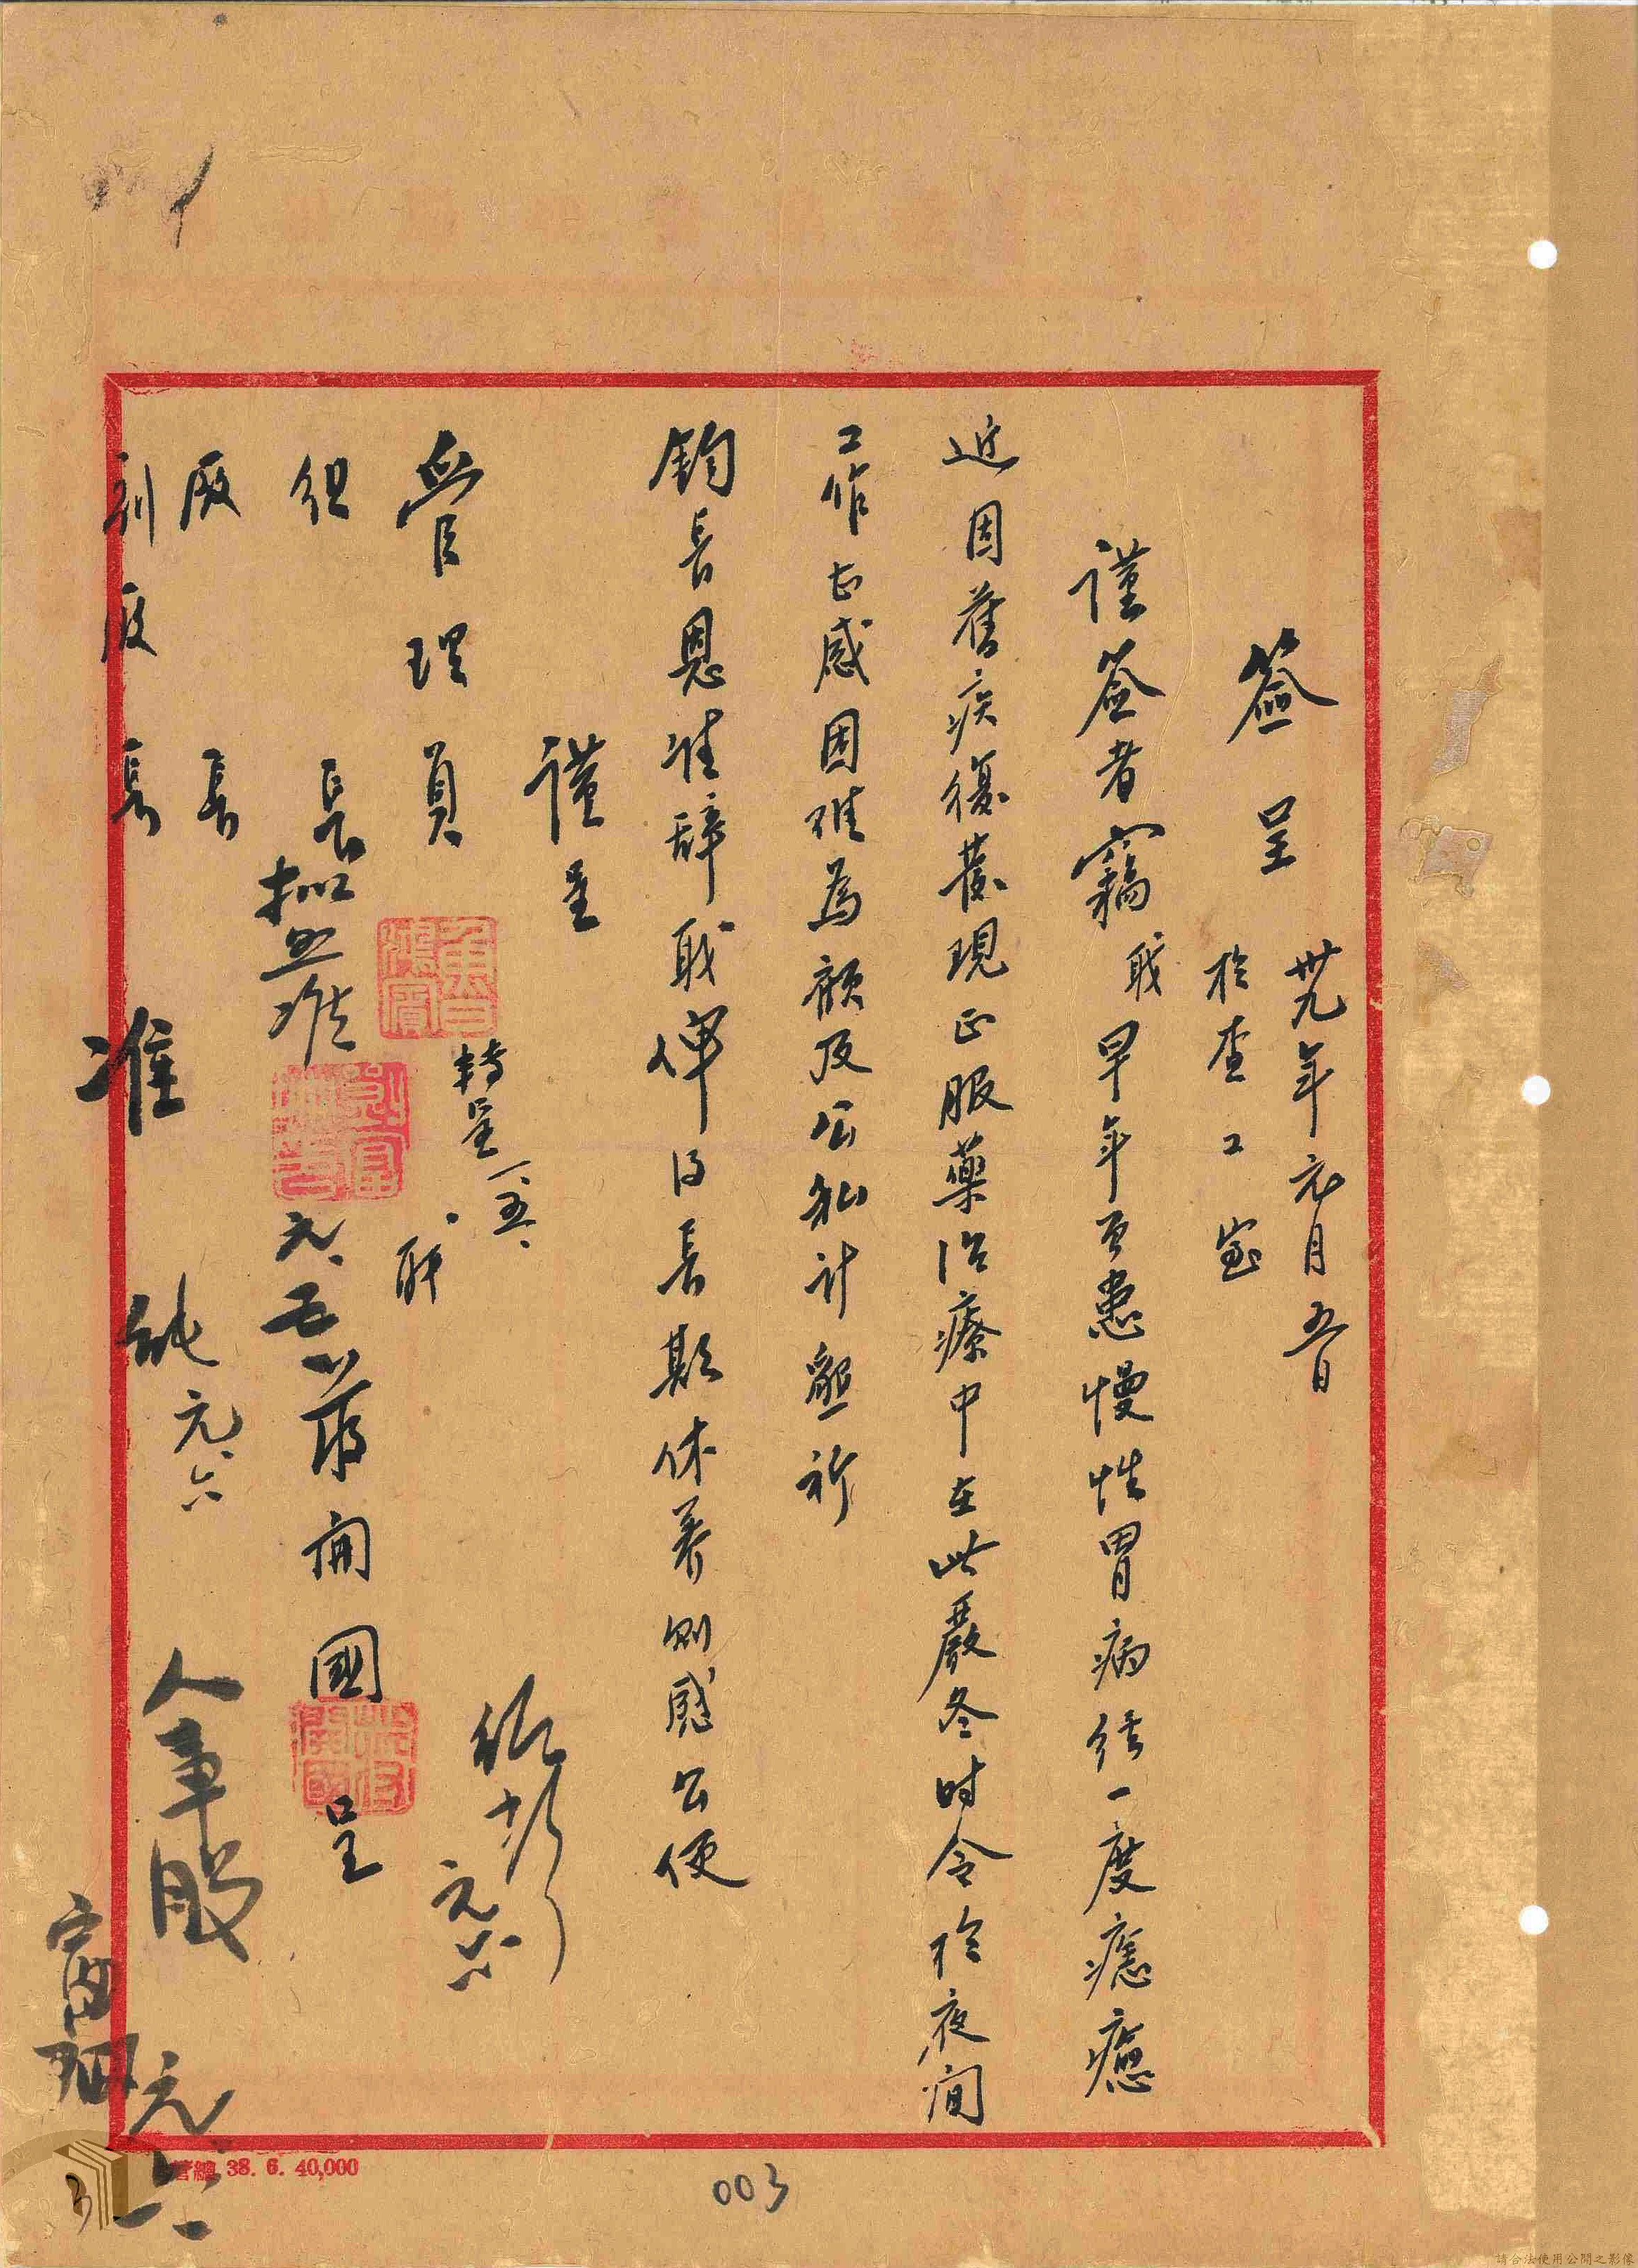 簽呈
卅九年元月五日
於查工室
謹簽者竊職早年曾患慢性胃病經一度癒癒
近因舊疾復舊現正服藥治療中在此嚴冬時令於夜間
工作甚感困難為顧及公私計懇祈
鈞長恩准辭職俾得長期休養則感公便
謹呈
管理員
轉呈 一、五、
組長
擬照准
元、五
職
開國呈
元、六
廠長
副廠長
准
純 元、六
人事股
元、六
38. 6. 40,000
003
3
請合法使用公開之影像